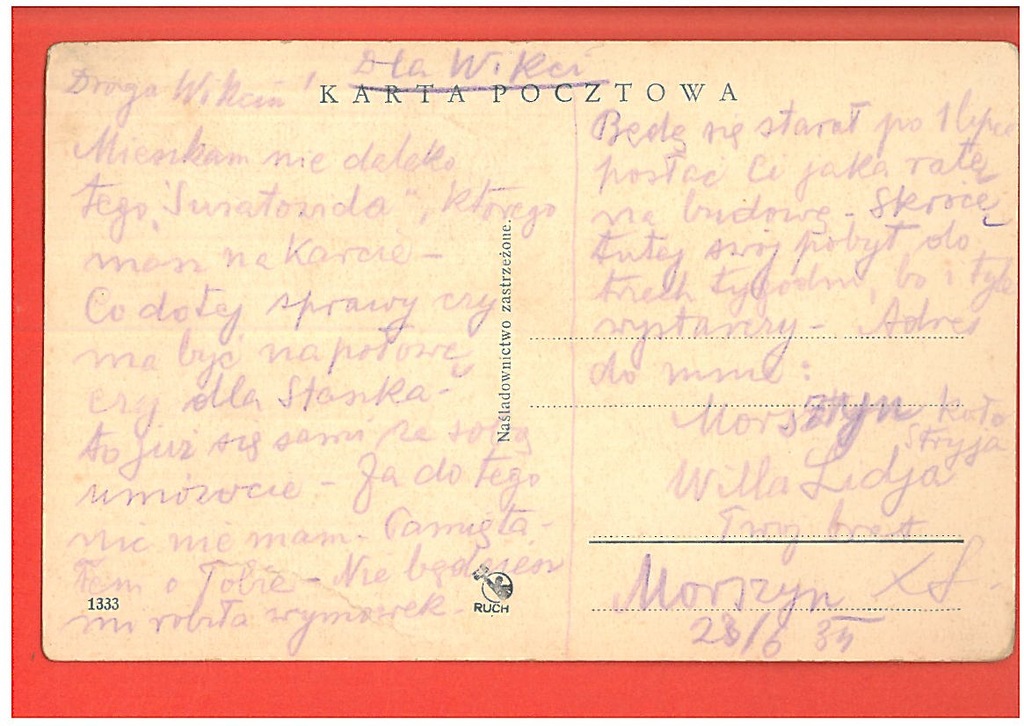 Dla Wikci
KARTA POCZTOWA
Droga Wikciu!
Mieszkam nie daleko
tego "Światowida", którego
masz na karcie -
Co do tej sprawy czy
ma być na połowę
czy dla Staszka -
to już się sami ze sobą
umówcie - Ja do tego
nic nie mam - Pamięta-
łem o Tobie - Nie będziesz
mi robiła wymówek -
1333
Naśladownictwo zastrzeżone.
RUCH
Będę się starał po 1 lipca
posłać Ci jaką ratę
na budowę - Skrócę
tutej swój pobyt do
trzech tygodni, bo i tyle
wystarczy - Adres
do mnie:
Morsztyn koło
Stryja
Willa Lidja
Twój brat
Morszyn
23/6 34